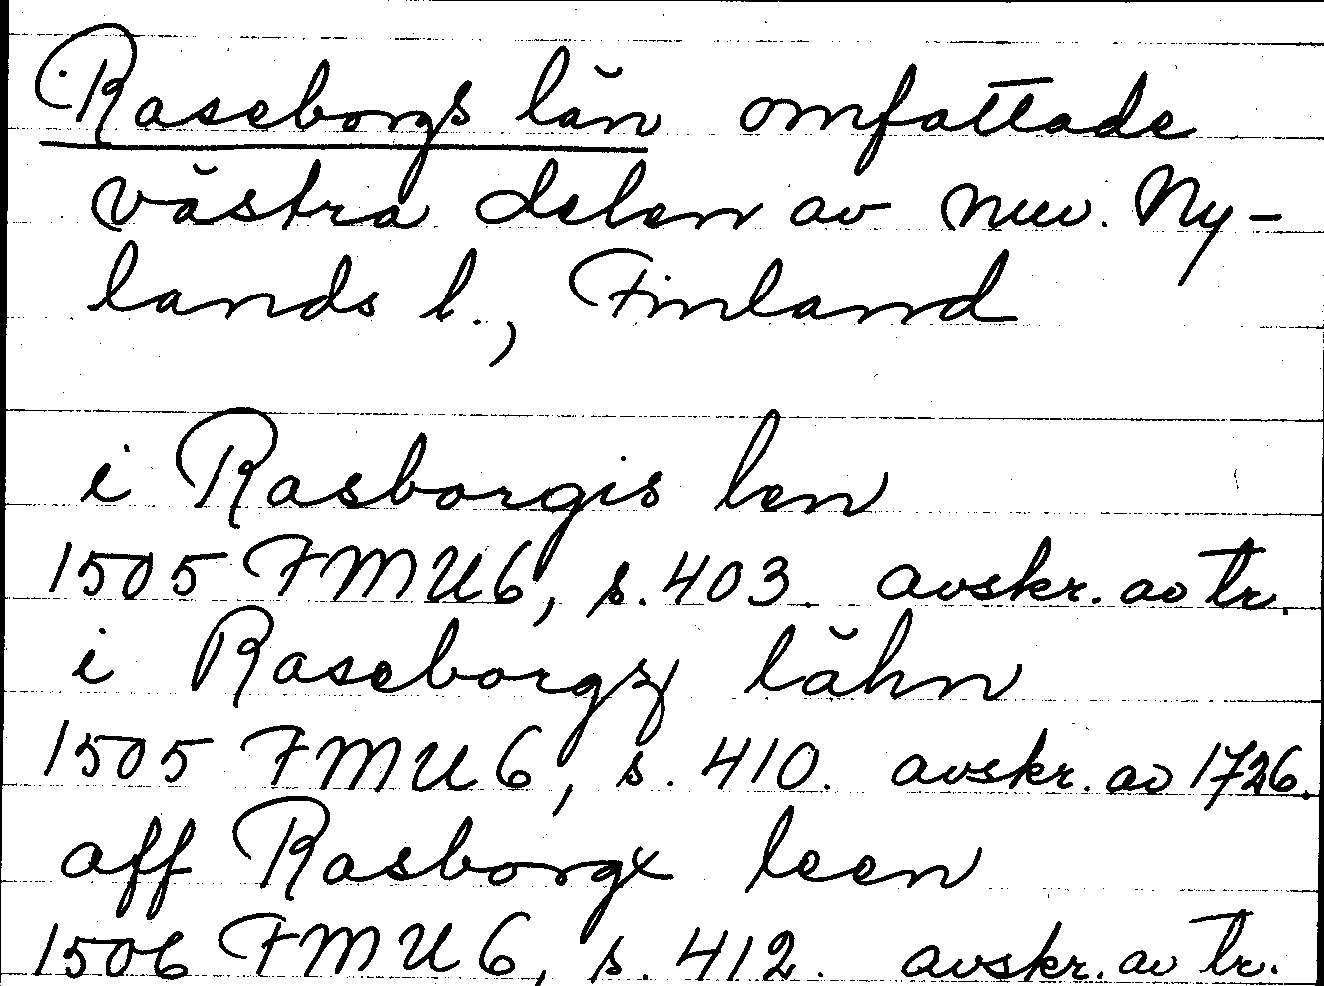 Raseborgs län omfattade
västra delen av nuv. Ny-
lands l., Finland
i Rasborgis len
1505 FMU6, s. 403. avskr. av tr.
i Raseborgz lähn
1505 FMU6, s. 410. avskr. av 1726.
aff Rasborgx leen
1506 FMU6, s. 412. avskr. av tr.